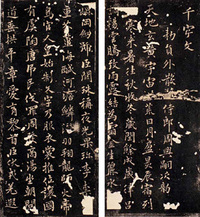 千字文
勅員外散騎侍郎周興嗣次韻
天地玄黃宇宙洪荒日月盈昃辰宿列
寒來暑往秋收冬藏閏餘成歲律呂
雲騰致雨露結為霜金生麗水
崗劍號巨闕珠稱夜光菓珍李柰
重芥薑海鹹河淡鱗潛羽翔龍師火帝
鳥官人皇始制文字乃服衣裳推位讓國
有虞陶唐弔民伐罪周發殷湯坐朝問
道垂拱平章愛育黎首臣伏戎羌遐